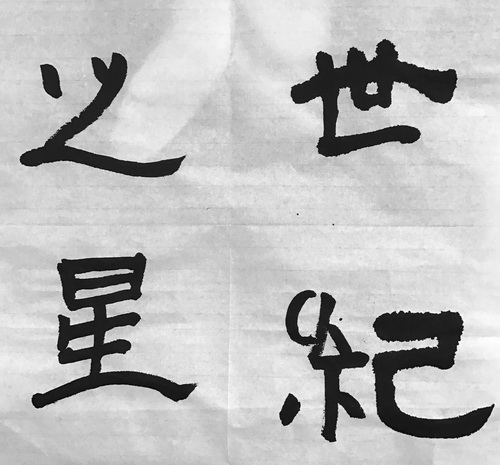 世紀
之星